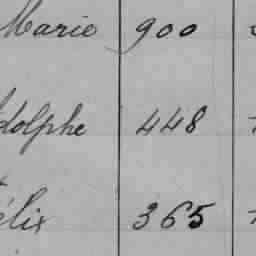 Marie 900
dolphe 448
élix 365